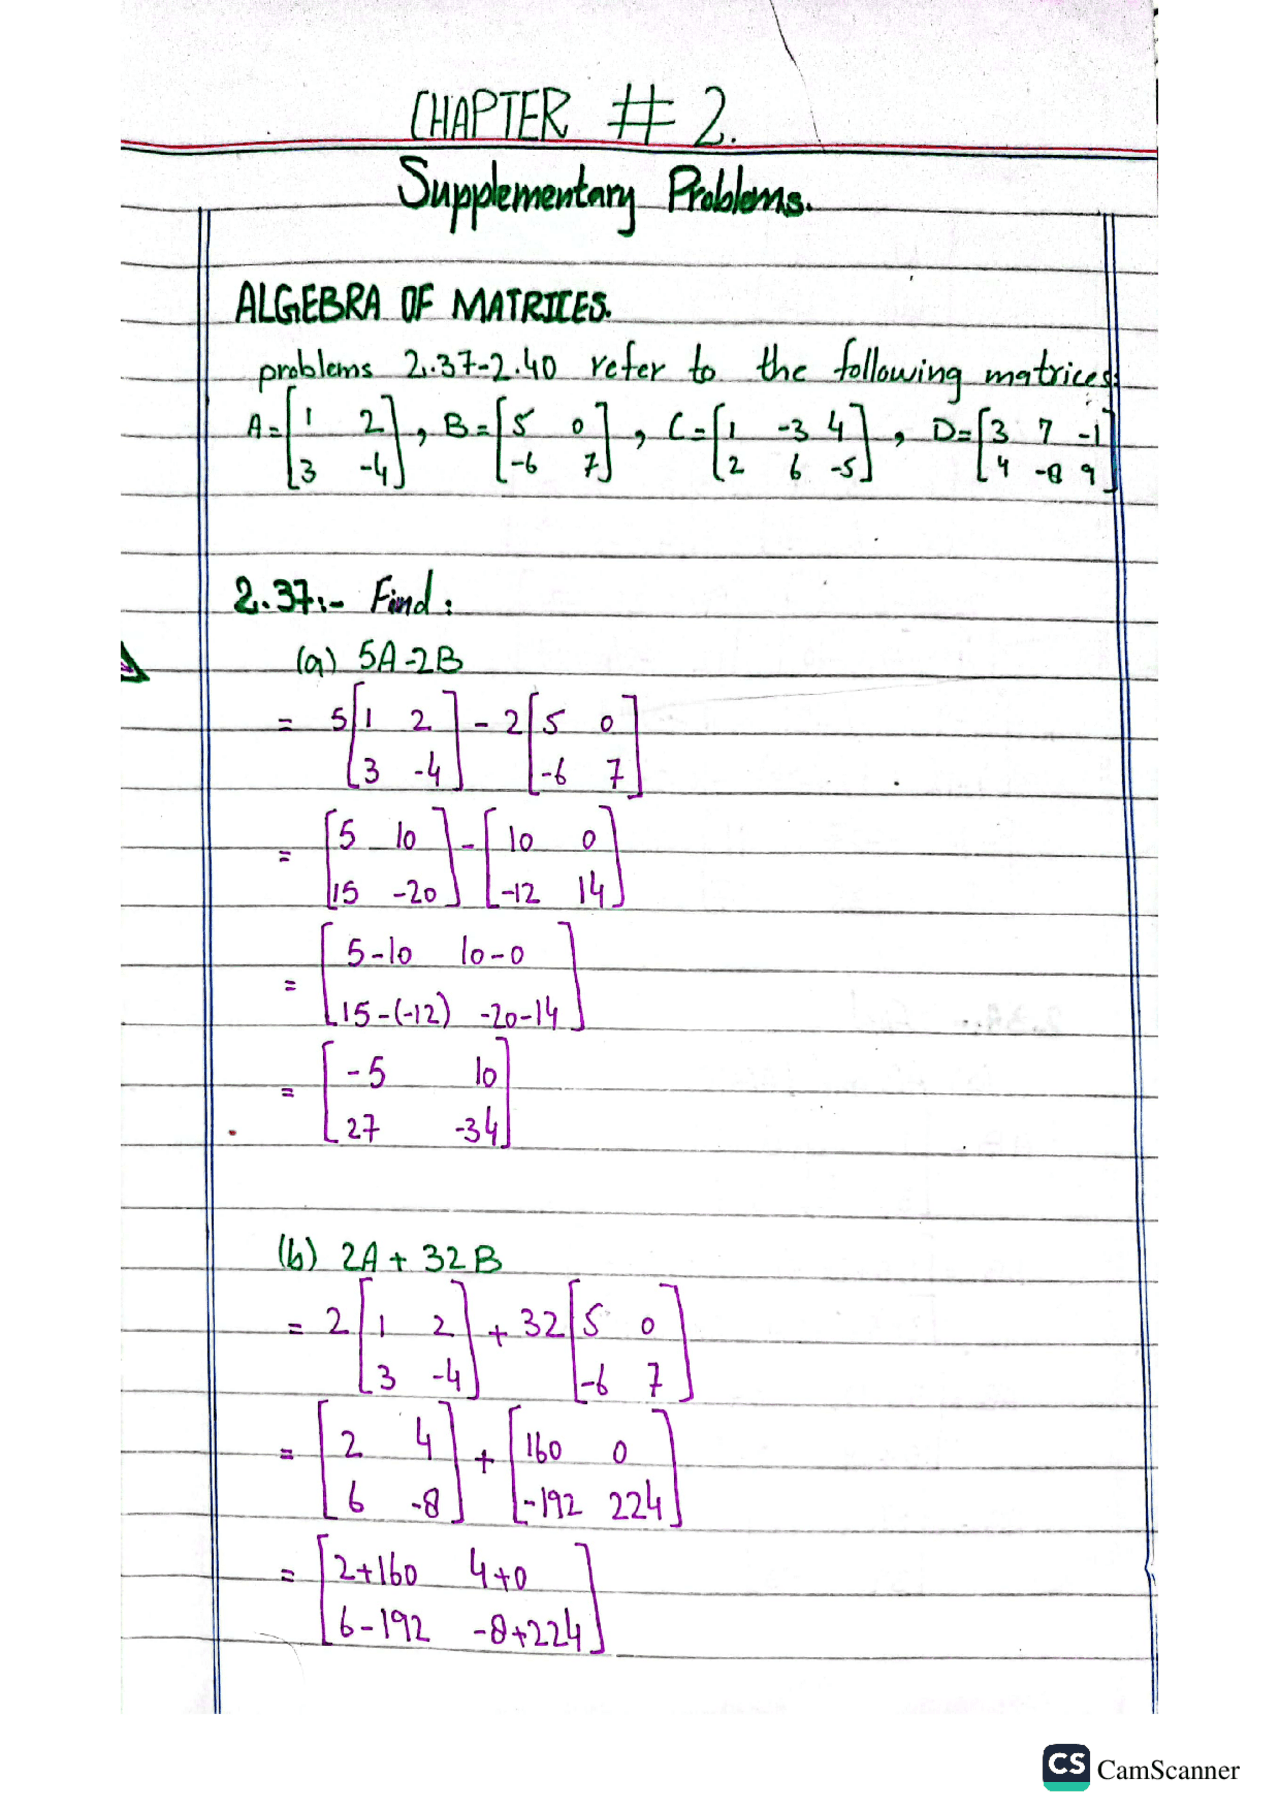 CHAPTER # 2.
Supplementary Problems.
ALGEBRA OF MATRICES.
problems 2.37-2.40 refer to the following matrices:
A = [1 2; 3 -4], B = [5 0; -6 7], C = [1 -3 4; 2 6 -5], D = [3 7 -1; 4 -8 9]
2.37:- Find:
(a) 5A-2B
= 5[1 2; 3 -4] - 2[5 0; -6 7]
= [5 10; 15 -20] - [10 0; -12 14]
= [5-10 10-0; 15-(-12) -20-14]
= [-5 10; 27 -34]
(b) 2A + 32B
= 2[1 2; 3 -4] + 32[5 0; -6 7]
= [2 4; 6 -8] + [160 0; -192 224]
= [2+160 4+0; 6-192 -8+224]
CS CamScanner